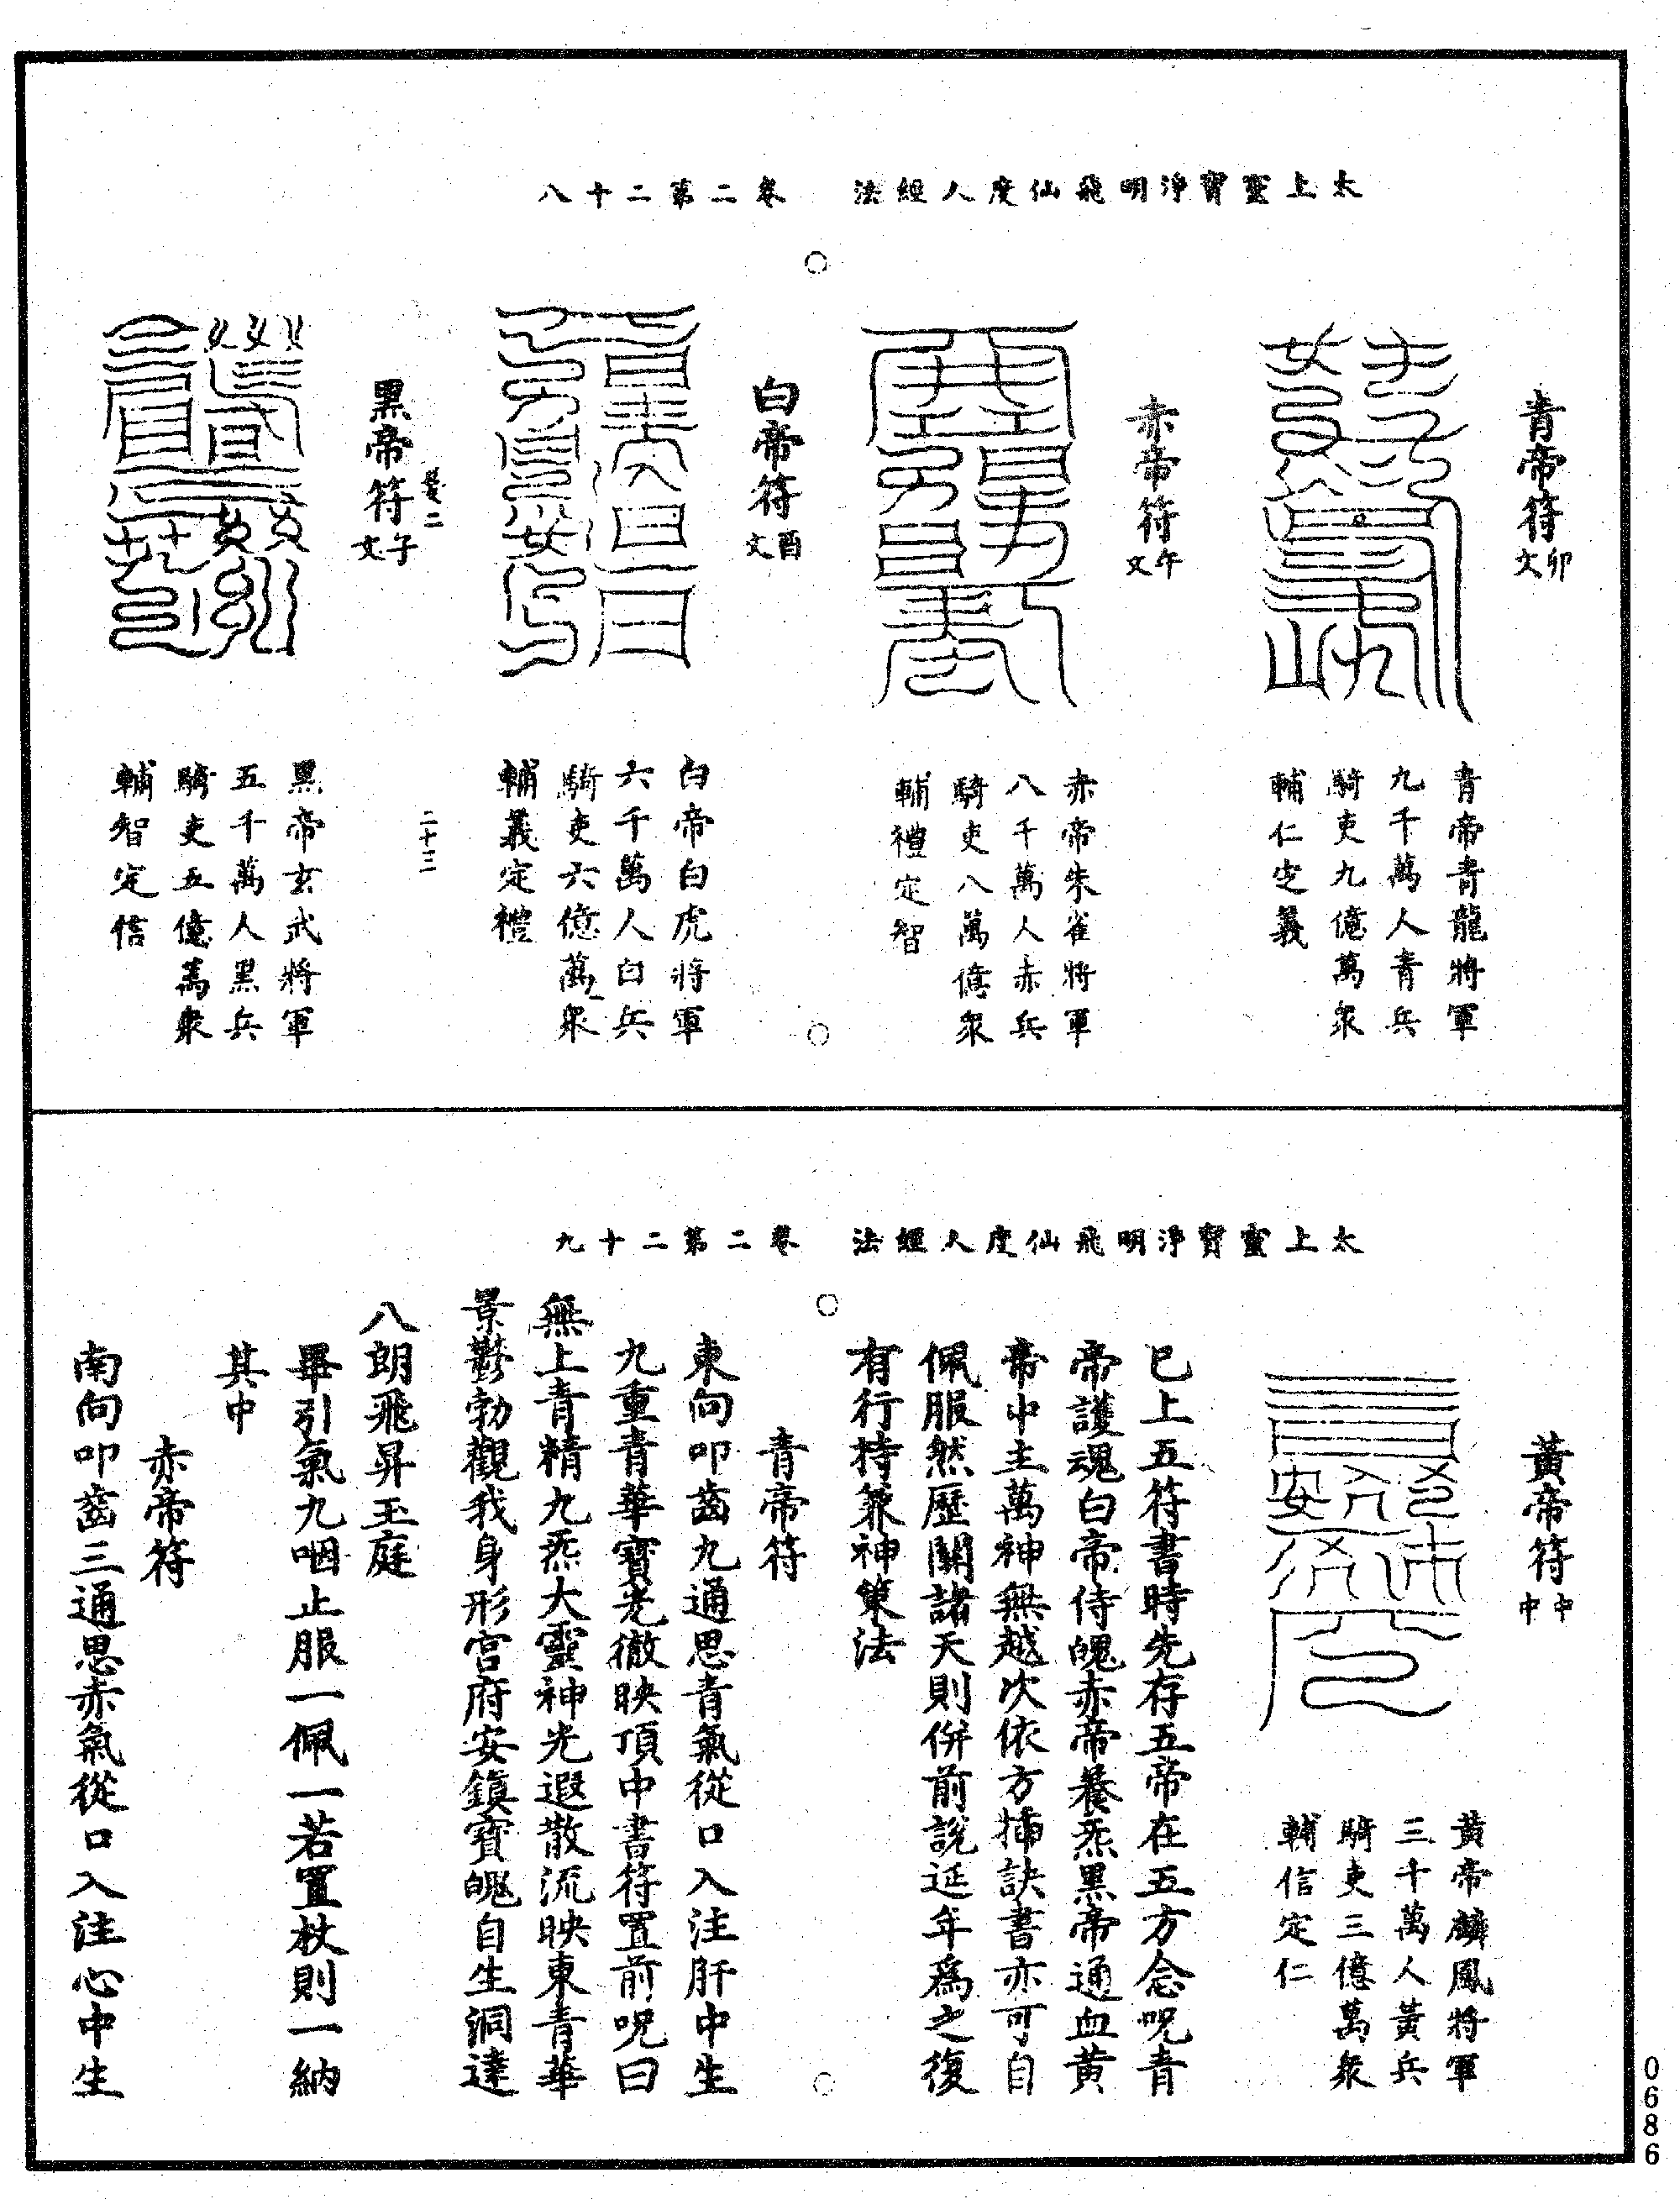 太上靈寶淨明飛仙度人經法　卷二第二十八
青帝符
卯文
青帝青龍將軍
九千萬人青兵
騎吏九億萬衆
輔仁定義
赤帝符
午文
赤帝朱雀將軍
八千萬人赤兵
騎吏八萬億衆
輔禮定智
白帝符
酉文
白帝白虎將軍
六千萬人白兵
騎吏六億萬衆
輔義定禮
卷二
二十三
黑帝符
子文
黑帝玄武將軍
五千萬人黑兵
騎吏五億萬衆
輔智定信
太上靈寶淨明飛仙度人經法　卷二第二十九
黃帝符
中中
黃帝麟鳳將軍
三千萬人黃兵
騎吏三億萬衆
輔信定仁
已上五符書時先存五帝在五方念呪青
帝護魂白帝侍魄赤帝養炁黑帝通血黃
帝中主萬神無越次依方掐訣書亦可自
佩服然歷關諸天則併前說延年爲之復
有行持兼神策法
青帝符
東向叩齒九通思青氣從口入注肝中生
九重青華寶光徹映頂中書符置前呪曰
無上青精九炁大靈神光遐散流映東青華
景鬱勃觀我身形宮府安鎮寶魄自生洞達
八朗飛昇玉庭
畢引氣九咽止服一佩一若置杖則一納
其中
赤帝符
南向叩齒三通思赤氣從口入注心中生
0686